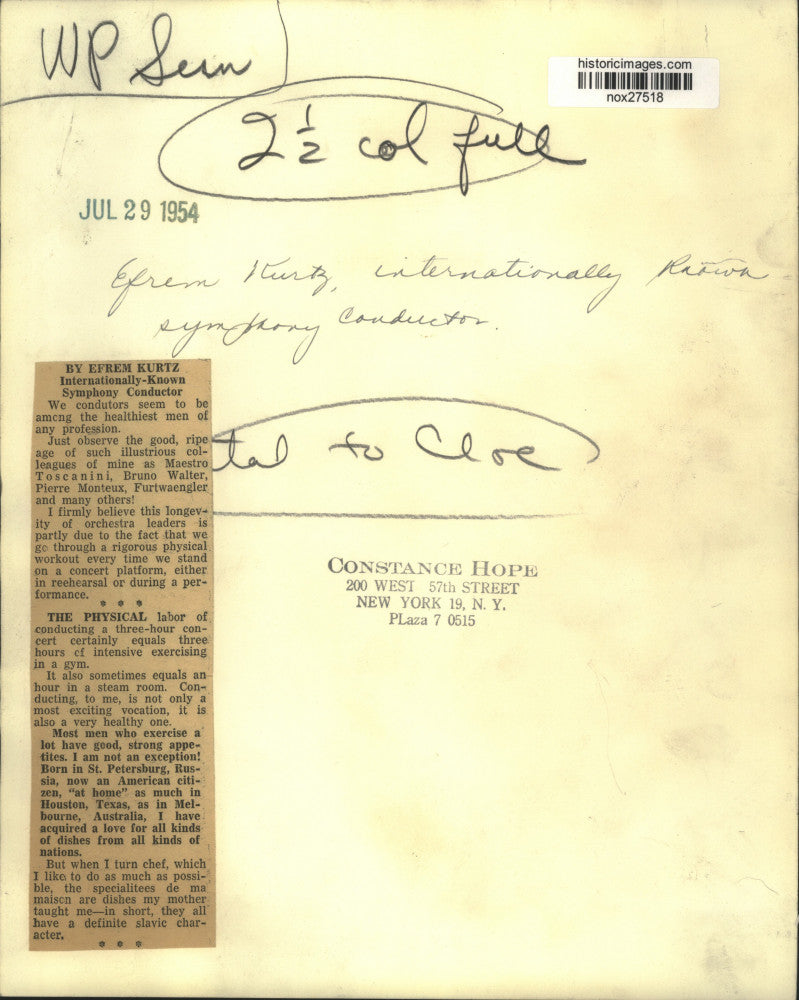 WP Sun
historicimages.com
nox27518
2 1/2 col full
JUL 29 1954
Efrem Kurtz, internationally known
symphony conductor.
BY EFREM KURTZ
Internationally-Known
Symphony Conductor
We condutors seem to be
among the healthiest men of
any profession.
Just observe the good, ripe
age of such illustrious col-
leagues of mine as Maestro
Toscanini, Bruno Walter,
Pierre Monteux, Furtwaengler
and many others!
I firmly believe this longev-
ity of orchestra leaders is
partly due to the fact that we
go through a rigorous physical
workout every time we stand
on a concert platform, either
in reehearsal or during a per-
formance.
* * *
THE PHYSICAL labor of
conducting a three-hour con-
cert certainly equals three
hours of intensive exercising
in a gym.
It also sometimes equals an
hour in a steam room. Con-
ducting, to me, is not only a
most exciting vocation, it is
also a very healthy one.
Most men who exercise a
lot have good, strong appe-
tites. I am not an exception!
Born in St. Petersburg, Rus-
sia, now an American citi-
zen, "at home" as much in
Houston, Texas, as in Mel-
bourne, Australia, I have
acquired a love for all kinds
of dishes from all kinds of
nations.
But when I turn chef, which
I like to do as much as possi-
ble, the specialitees de ma
maison are dishes my mother
taught me—in short, they all
have a definite slavic char-
acter.
* * *
to Cloe
CONSTANCE HOPE
200 WEST 57th STREET
NEW YORK 19, N. Y.
PLaza 7 0515